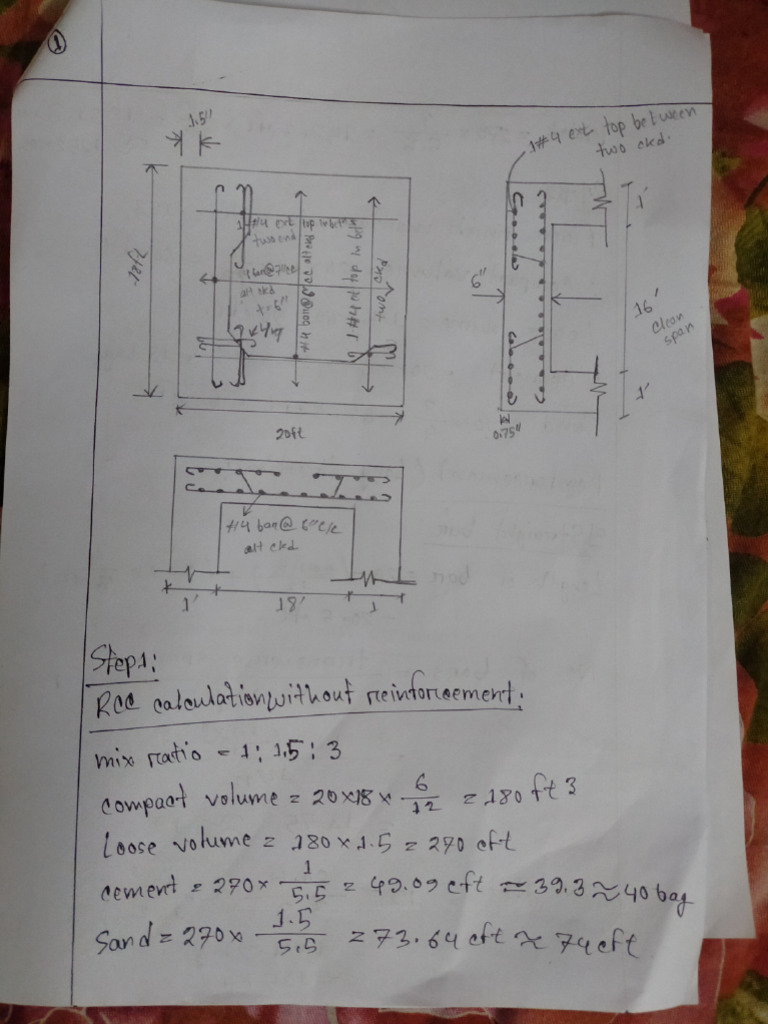 1
1.5"
1#4 ext top between
two ckd.
18ft
1#4 ext top in between
two ckd
alt ckd
t=6"
#4 bar@6"c/c alt ckd
1#4 ext top in between
two ckd
20ft
1'
6"
16'
clean
span
1'
0.75"
#4 bar@ 6"c/c
alt ckd
1' 18' 1
Step1:
RCC calculation without reinforcement:
mix ratio = 1: 1.5: 3
compact volume = 20x18x 6/12 = 180 ft3
Loose volume = 180 x 1.5 = 270 cft
cement = 270x 1/5.5 = 49.09 cft = 39.3 ≈ 40 bag
Sand = 270x 1.5/5.5 = 73.64 cft ≈ 74 cft